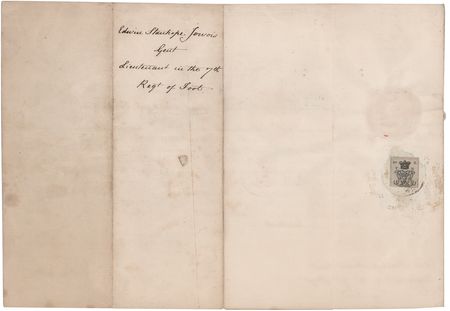 Edwin Stanhope Jervois
Gent
Lieutenant in the 7th
Regt of Foot